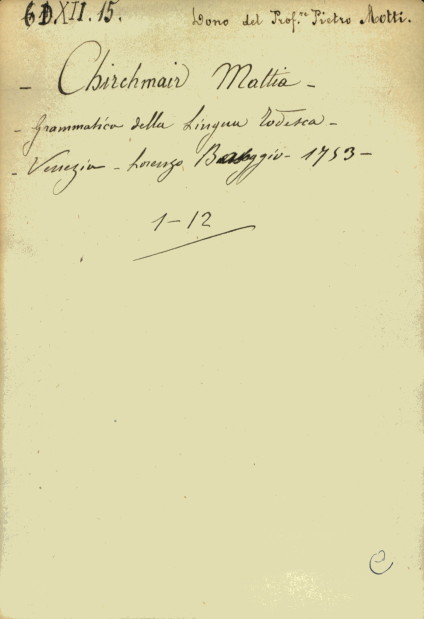 6D XII. 15.
Dono del Prof.re Pietro Motti.
- Chirchmair Mattia -
- Grammatica della Lingua Todesca -
- Venezia - Lorenzo Baseggio - 1753 -
1-12
C